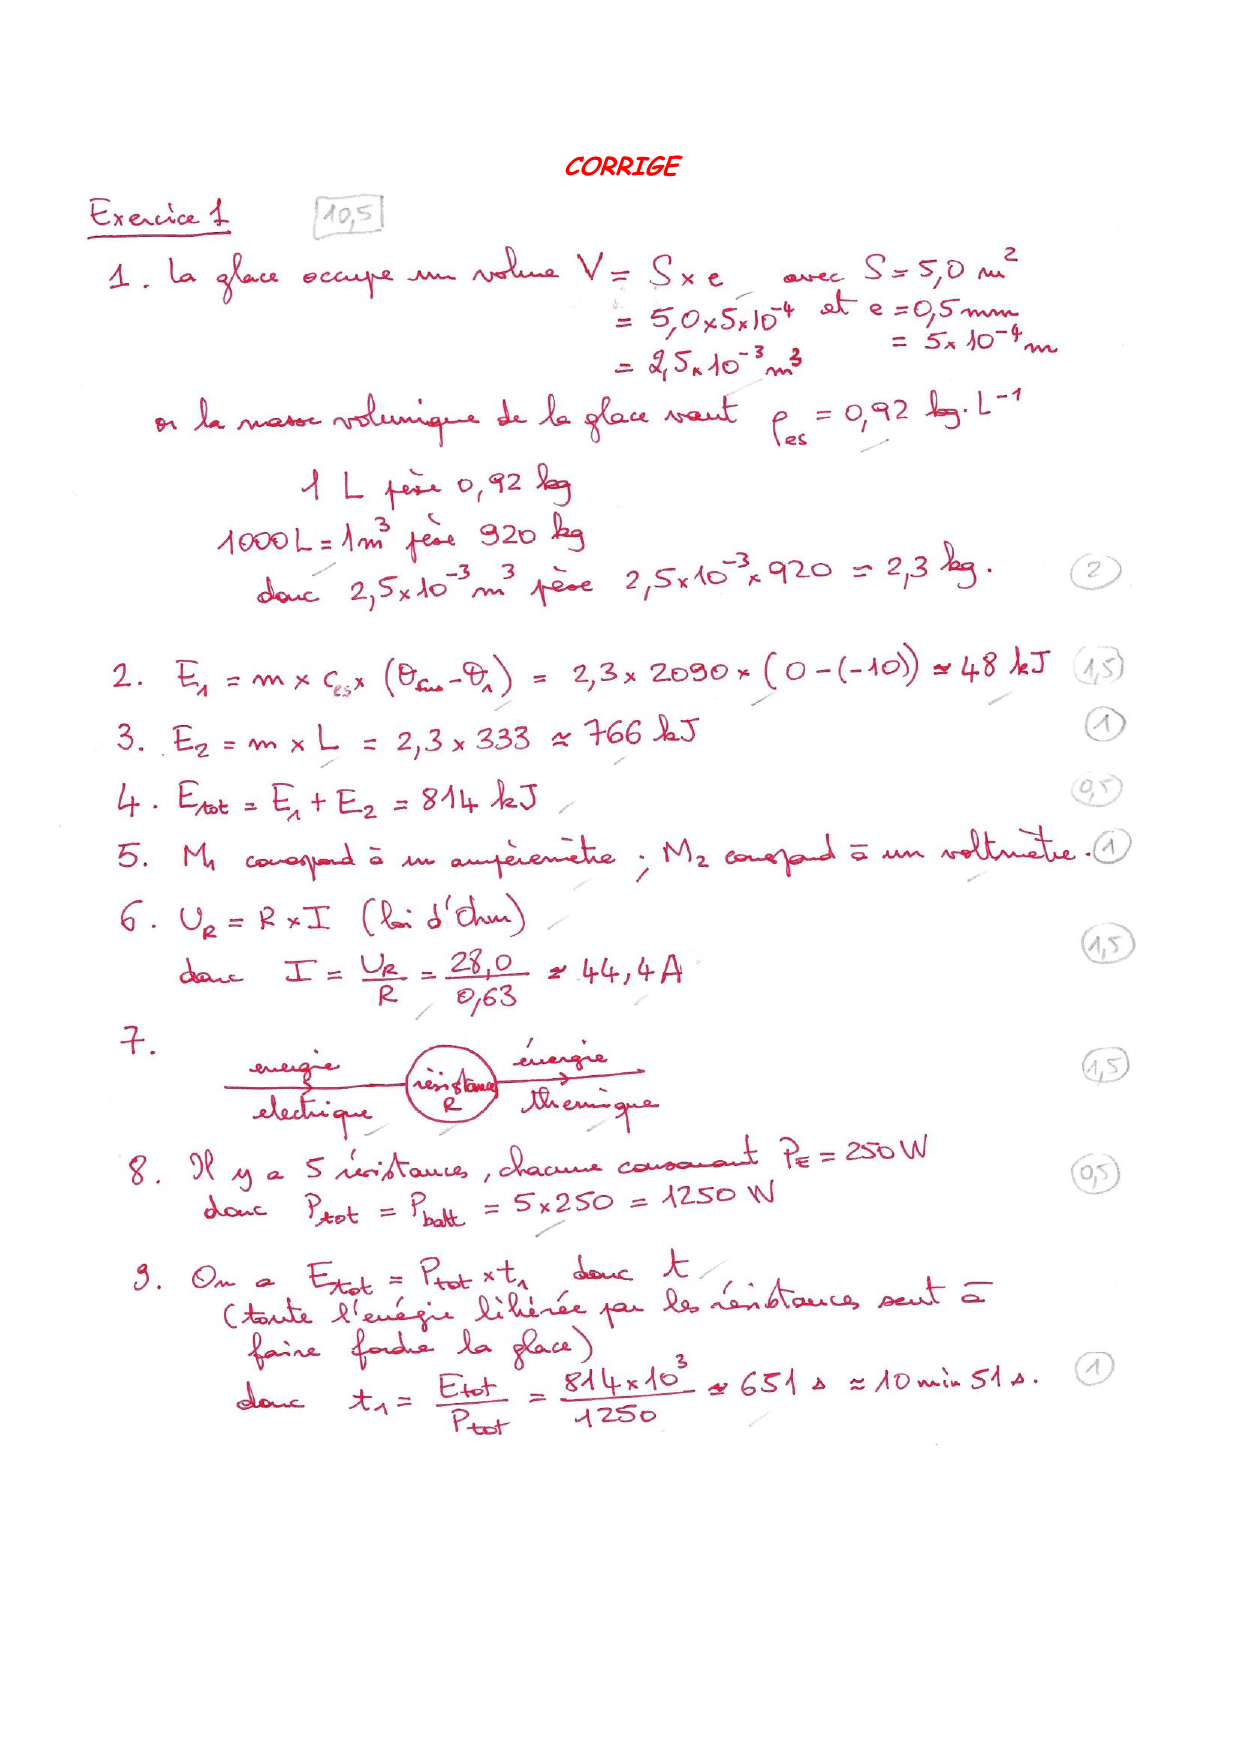 CORRIGE
Exercice 1 10,5
1. La glace occupe un volume V = S × e avec S = 5,0 m²
= 5,0 × 5 × 10⁻⁴ et e = 0,5 mm
= 5 × 10⁻⁴ m
= 2,5 × 10⁻³ m³
or la masse volumique de la glace vaut ρes = 0,92 kg. L⁻¹
1 L pèse 0,92 kg
1000 L = 1 m³ pèse 920 kg
donc 2,5 × 10⁻³ m³ pèse 2,5 × 10⁻³ × 920 = 2,3 kg. 2
2. E₁ = m × ces × (θfus - θ₁) = 2,3 × 2090 × (0 - (-10)) ≈ 48 kJ 1,5
3. E₂ = m × L = 2,3 × 333 ≈ 766 kJ 1
4. Etot = E₁ + E₂ = 814 kJ 0,5
5. M₁ correspond à un ampèremètre ; M₂ correspond à un voltmètre. 1
6. UR = R × I (loi d'Ohm)
donc I = UR/R = 28,0/0,63 ≈ 44,4 A 1,5
7.
energie énergie
résistance 1,5
electrique R thermique
8. Il y a 5 résistances, chacune consommant PE = 250 W
donc Ptot = Pbatt = 5 × 250 = 1250 W 0,5
9. On a Etot = Ptot × t₁ donc t
(toute l'énergie libérée par les résistances sert à
faire fondre la glace)
donc t₁ = Etot/Ptot = 814 × 10³/1250 ≈ 651 s ≈ 10 min 51 s. 1